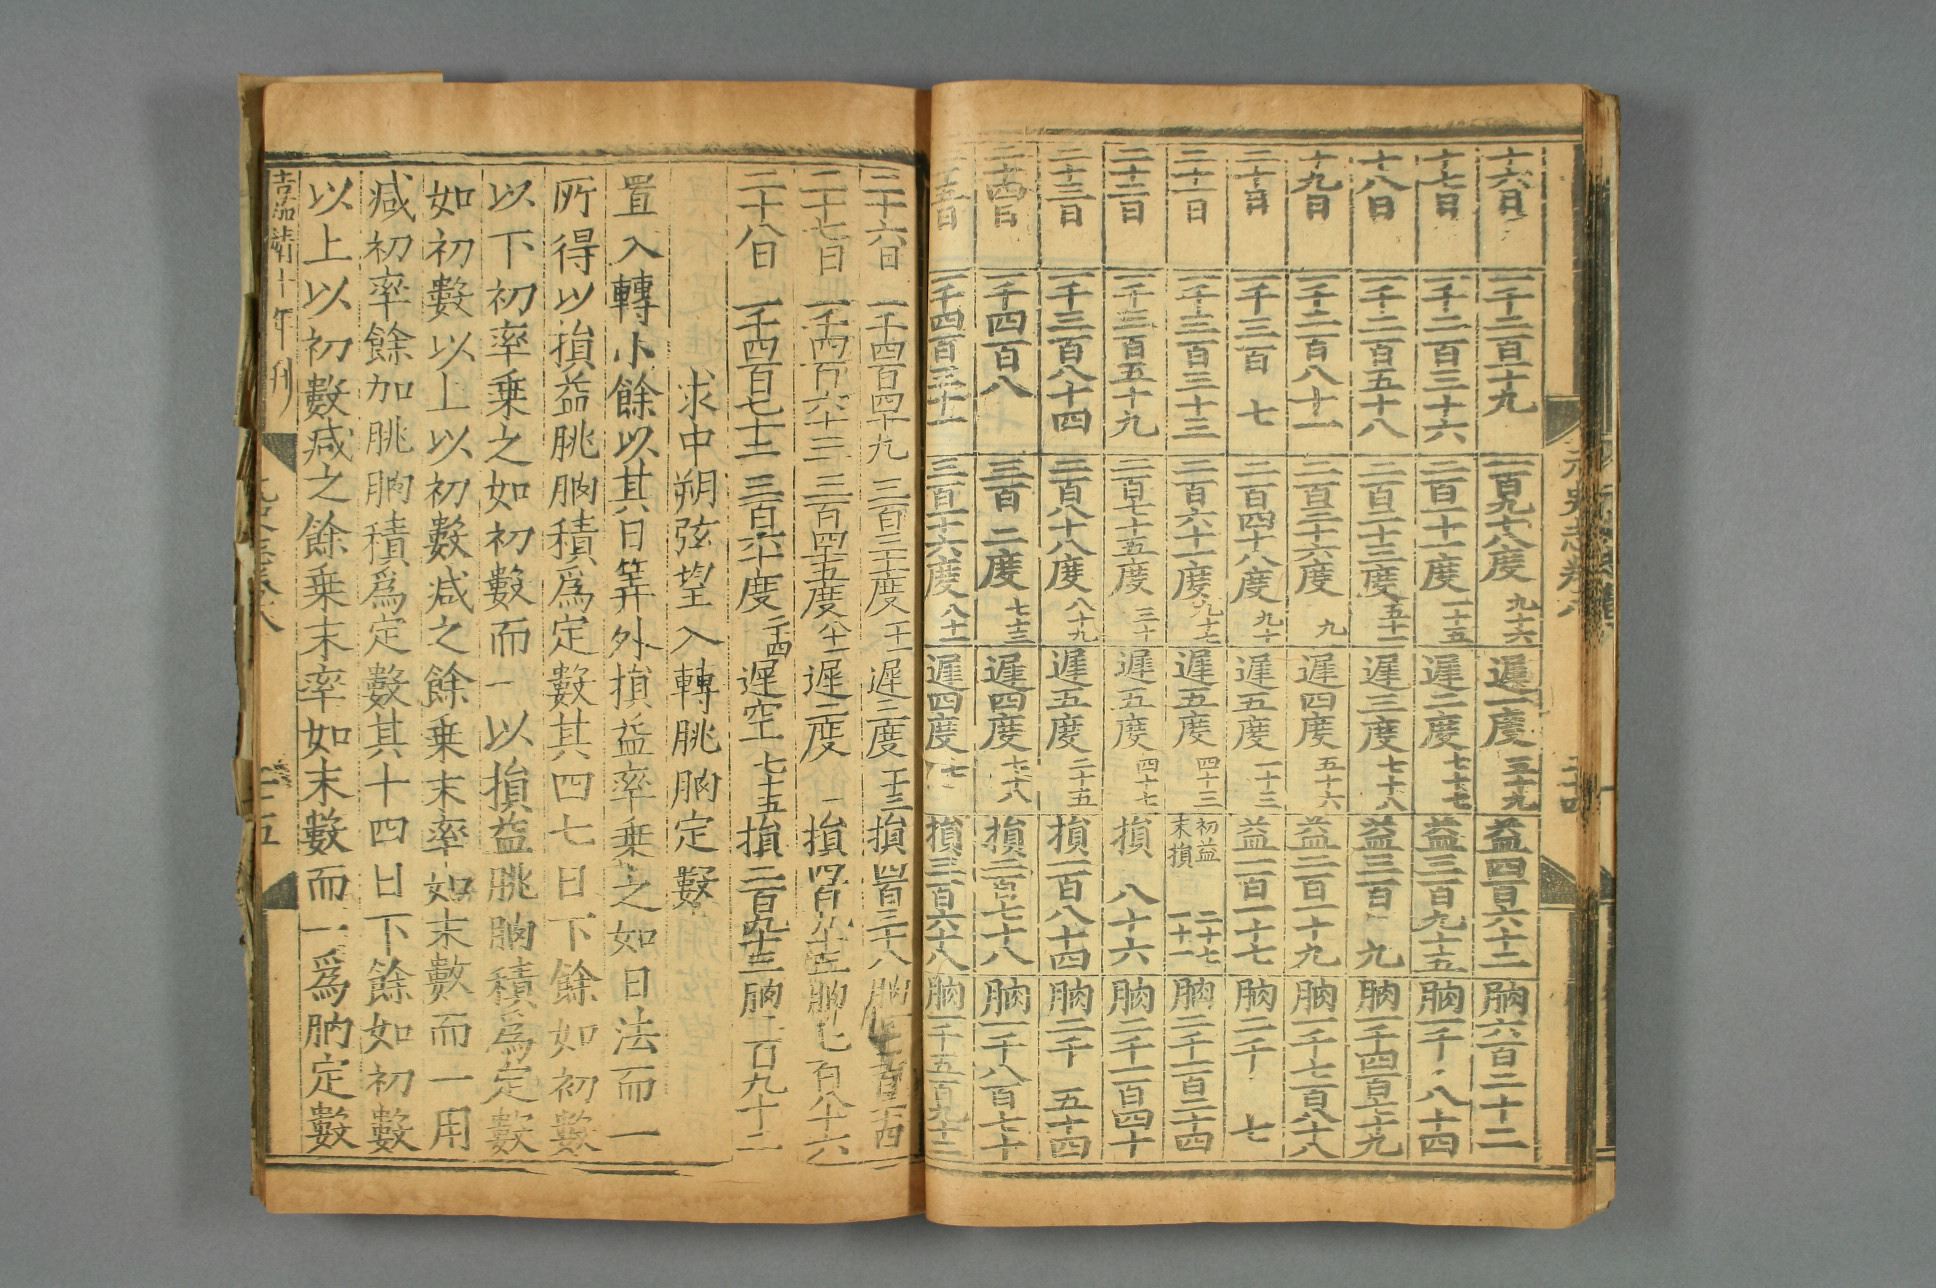 元史志卷八
二十四
十六日 一千二百一十九 一百九十八度九十六 遲一度五十九 益四百六十二 朒六百二十二
十七日 一千二百三十六 二百一十一度一十五 遲二度七十七 益三百九十五 朒一千八十四
十八日 一千二百五十八 二百二十三度五十一 遲三度七十八 益三百九 朒一千四百七十九
十九日 一千二百八十一 二百三十六度九 遲四度五十六 益二百一十九 朒一千七百八十八
二十日 一千三百七 二百四十八度九十 遲五度一十三 益一百一十七 朒二千七
二十一日 一千三百三十三 二百六十一度九十七 遲五度四十三 初益二十七 末損一十一 朒二千一百二十四
二十二日 一千三百五十九 二百七十五度三十 遲五度四十七 損八十六 朒二千一百四十
二十三日 一千三百八十四 二百八十八度八十九 遲五度二十五 損一百八十四 朒二千五十四
二十四日 一千四百八 三百二度七十三 遲四度七十八 損二百七十八 朒一千八百七十
二十五日 一千四百三十一 三百一十六度八十一 遲四度七 損三百六十八 朒一千五百九十二
二十六日 一千四百四十九 三百三十一度一十二 遲三度一十三 損四百三十八 朒一千二百二十四
二十七日 一千四百六十三 三百四十五度六十一 遲二度一 損四百九十三 朒七百八十六
二十八日 一千四百七十二 三百六十度二十四 遲空七十五 損二百九十三 朒二百九十二
求中朔弦望入轉朓朒定數
置入轉小餘以其日筭外損益率乘之如日法而一
所得以損益朓朒積爲定數其四七日下餘如初數
以下初率乘之如初數而一以損益朓朒積爲定數
如初數以上以初數减之餘乘末率如末數而一用
减初率餘加朓朒積爲定數其十四日下餘如初數
以上以初數减之餘乘末率如末數而一爲朒定數
嘉靖十年刊
元史志卷八
二十五